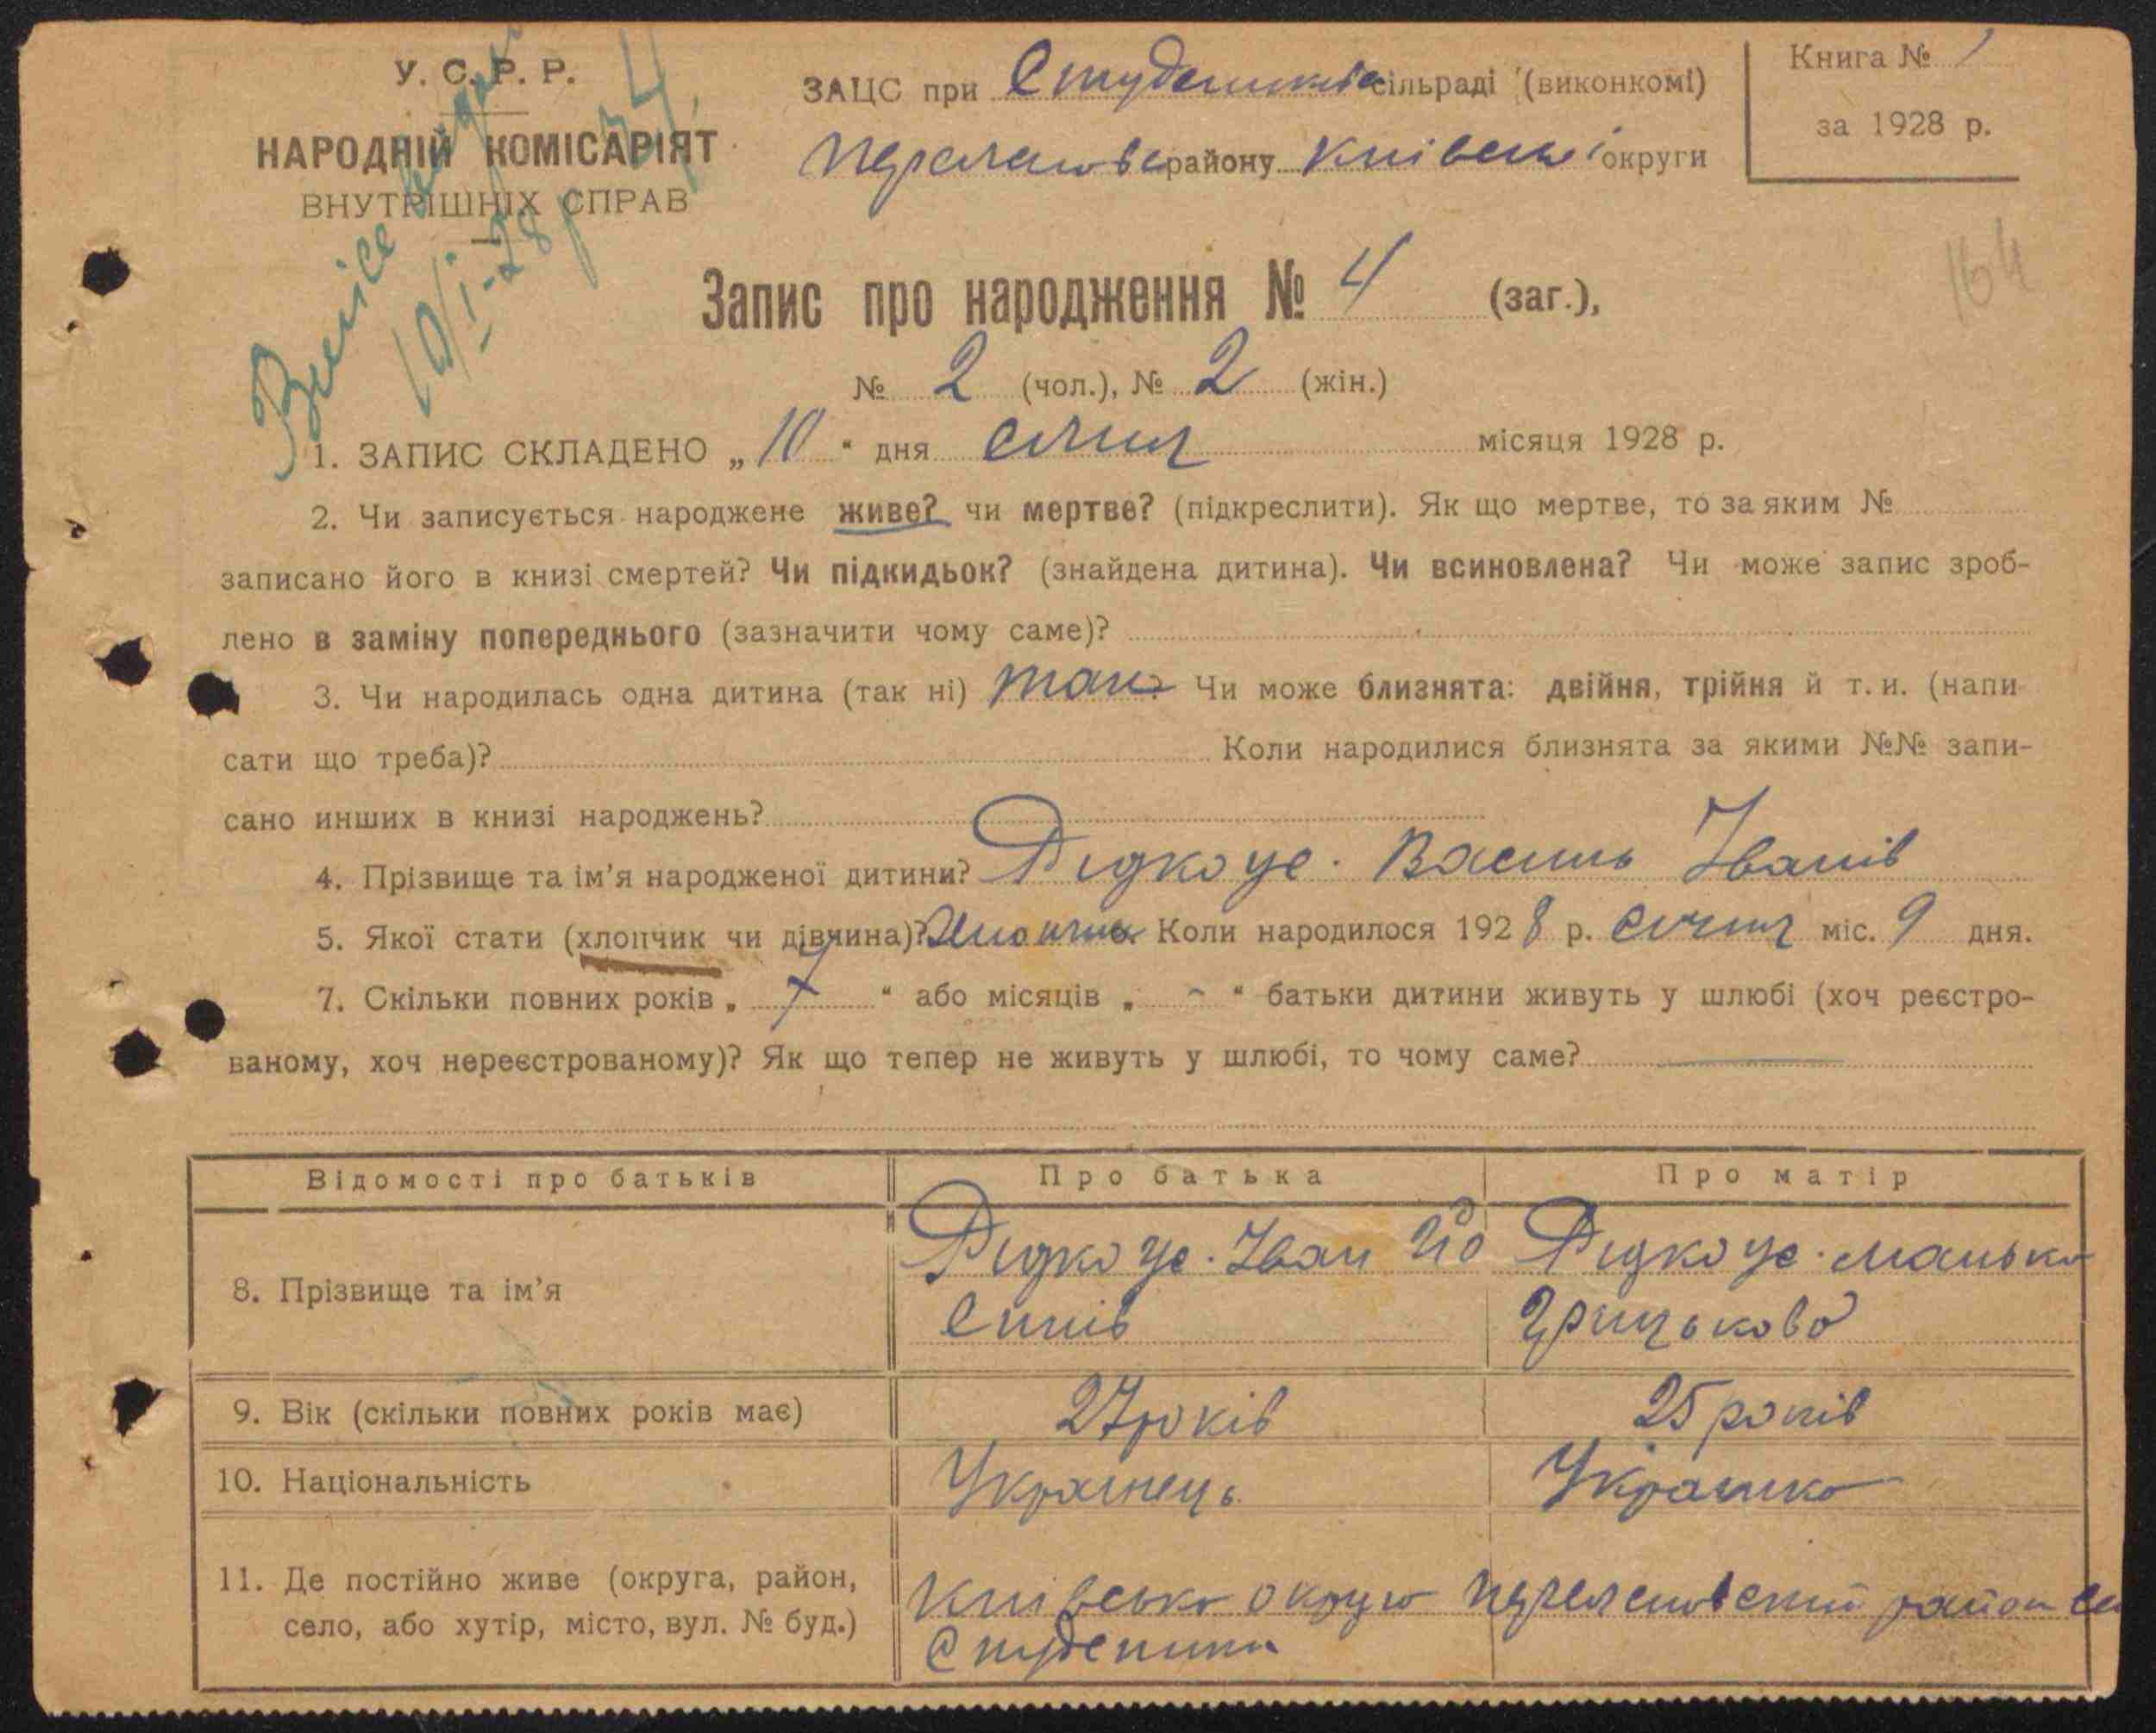 У. С. Р. Р.
НАРОДНІЙ КОМІСАРІЯТ
ВНУТРІШНІХ СПРАВ
ЗАЦС при Студениківс сільраді (виконкомі)
Переяслівс району Київської округи
Книга № 1
за 1928 р.
10/I-28 р
164
Запис про народження № 4 (заг.),
№ 2 (чол.), № 2 (жін.)
1. ЗАПИС СКЛАДЕНО „10“ дня січня місяця 1928 р.
2. Чи записується народжене живе? чи мертве? (підкреслити). Як що мертве, то за яким №
записано його в книзі смертей? Чи підкидьок? (знайдена дитина). Чи всиновлена? Чи може запис зроб-
лено в заміну попереднього (зазначити чому саме)?
3. Чи народилась одна дитина (так ні) так Чи може близнята: двійня, трійня й т. и. (напи
сати що треба)? Коли народилися близнята за якими №№ запи-
сано инших в книзі народжень?
4. Прізвище та ім'я народженої дитини? Рідкоус. Василь Іванів
5. Якої стати (хлопчик чи дівчина)? Хлопчик Коли народилося 1928 р. січня міс. 9 дня.
7. Скільки повних років „ 7 “ або місяців „ - “ батьки дитини живуть у шлюбі (хоч реєстро-
ваному, хоч нереєстрованому)? Як що тепер не живуть у шлюбі, то чому саме?
Відомості про батьків Про батька Про матір
8. Прізвище та ім'я
Рідкоус. Іван Йо
сипів
Рідкоус. Манька
Грицькова
9. Вік (скільки повних років має) 27 років 25 років
10. Національність Українець Українка
11. Де постійно живе (округа, район,
село, або хутір, місто, вул. № буд.)
Київська округа Переяслівський район се
Студеники